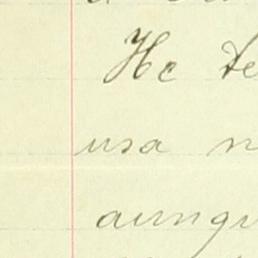 He te
usa n
aunqu